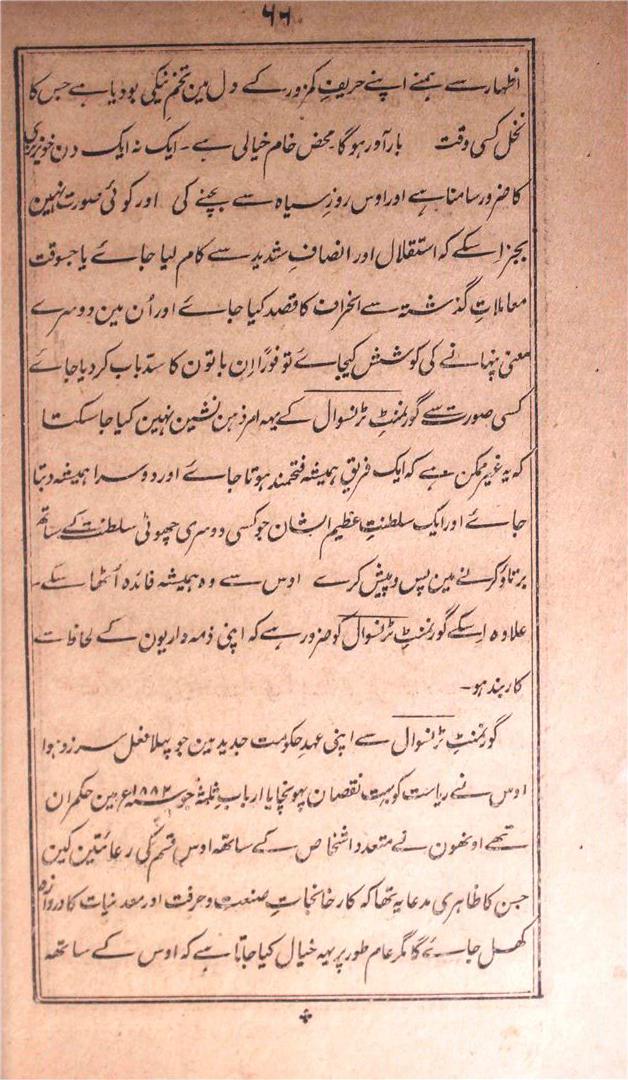 ۶۶
اظہار سے ہمنے اپنے حریفِ کمزور کے دل مین تخمِ نیکی بودیا ہے جس کا
نخل کسی وقت بارآور ہوگا۔ محض خام خیالی ہے۔ ایک نہ ایک دن خونریزی
کا ضرور سامنا ہے اور اوس روزِ سیاہ سے بچنے کی اور کوئی صورت نہین
بجز اسکے کہ استقلال اور انصافِ شدید سے کام لیا جائے یا جسوقت
معاملاتِ گذشتہ سے انحراف کا قصد کیا جائے اور اُن مین دوسرے
معنی پنہانے کی کوشش کیجائے تو فوراً اِن باتون کا سدّباب کر دیا جائے
کسی صورت سے گورنمنٹِ ٹرنسوال کے یہہ امر ذہن نشین نہین کیا جاسکتا
کہ یہ غیر ممکن ہے کہ ایک فریق ہمیشہ فتحمند ہوتا جائے اور دوسرا ہمیشہ دبتا
جائے اور ایک سلطنتِ عظیم الشان جو کسی دوسری چھوٹی سلطنت کے ساتھ
برتاؤ کرنے مین پس وپیش کرے اوس سے وہ ہمیشہ فائدہ اُٹھا سکے۔
علاوہ اسکے گورنمنٹِ ٹرنسوال کو ضرور ہے کہ اپنی ذمہ داریون کے لحاظ سے
کاربند ہو۔
گورنمنٹِ ٹرنسوال سے اپنی عہدِ حکومت جدید مین جو پہلا فعل سرزد ہوا
اوس نے ریاست کو بہت نقصان پہونچایا اربابِ ثلٰثہ جو سنہ ۱۸۸۲ء مین حکمران
تھے اونھون نے متعدد اشخاص کے ساتھہ اوس قسم کی رعائتین کین
جن کا ظاہری مدعا یہ تھا کہ کارخانجاتِ صنعت وحرفت اور معدنیات کا دروازہ
کھل جائے گا مگر عام طور پر یہہ خیال کیا جاتا ہے کہ اوس کے ساتھہ